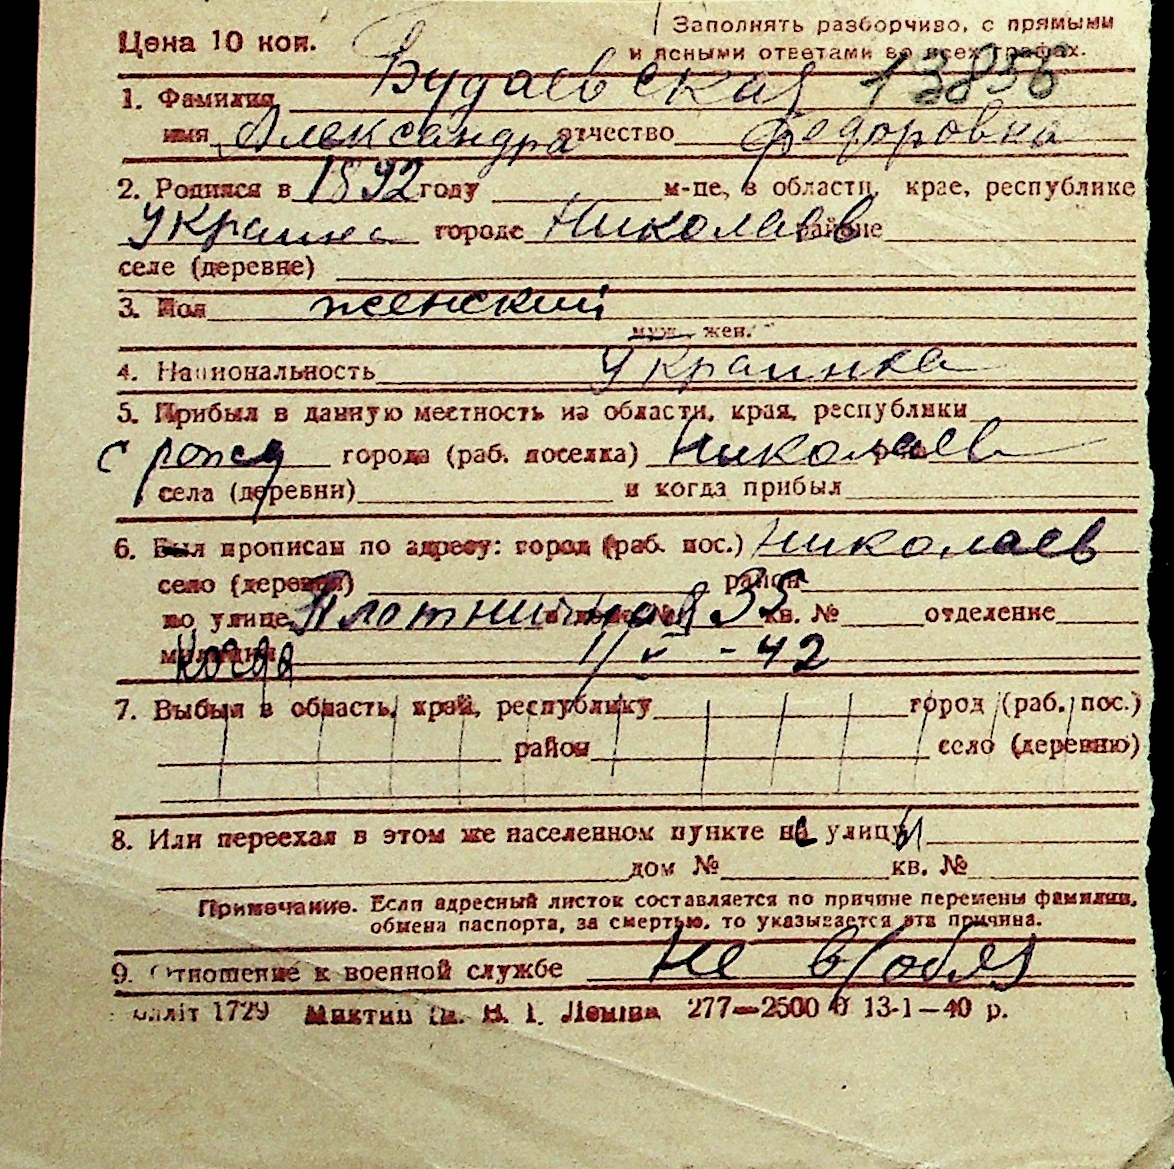 Заполнять разборчиво, с прямыми
Цена 10 коп. и ясными ответами во всех графах.
1. Фамилия Будаевская 13856
имя Александра отчество Федоровна
2. Родился в 1892 году м-це, в области, крае, республике
Украина городе Николаев районе
селе (деревне)
3. Пол женский
муж. жен.
4. Национальность Украинка
5. Прибыл в данную местность из области, края, республики
с города (раб. поселка) Николаев
села (деревни) и когда прибыл
6. Был прописан по адресу: город (раб. пос.) Николаев
село (деревня) район
по улице Плотничная 35 кв. № отделение
милиции когда 1/V -42
7. Выбыл в область, край, республику город (раб. пос.)
район село (деревню)
8. Или переехал в этом же населенном пункте на улицу
дом № кв. №
Примечание. Если адресный листок составляется по причине перемены фамилии,
обмена паспорта, за смертью, то указывается эта причина.
9. Отношение к военной службе не в/обяз
1729 277—2500 13-1—40 р.